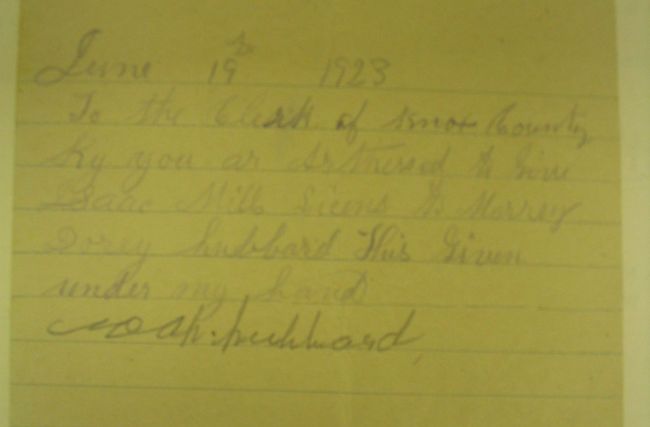 June 19th 1923
To the Clerk of Knox County
Ky you ar Arthersed to Give
Isaac Mills Licens to Marrey
Dorey hubbard This Given
under my hand
Noah hubbard